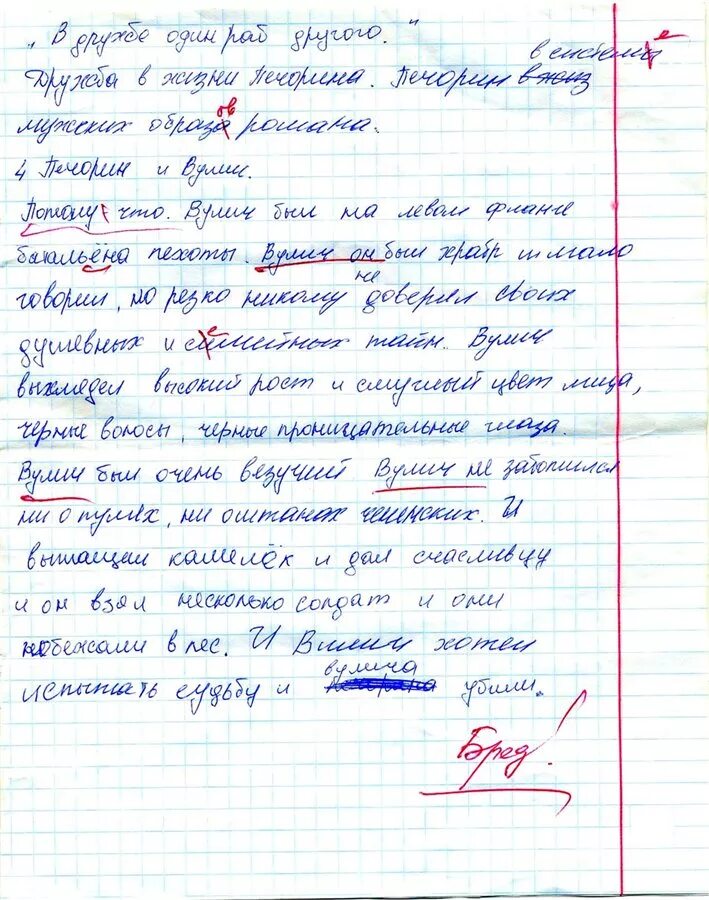 „ В дружбе один раб другого. "
Дружба в жизни Печорина. Печорин в системе
мужских образов романа.
4 Печорин и Вулич.
Потому что. Вулич был на левом фланге
батальёна пехоты. Вулич он был храбр и мало
говорил, но резко никому не доверял своих
душевных и семейных тайн. Вулич
выхлядел высокий рост и смуглый цвет лица,
черные волосы, черные проницательные глаза.
Вулич был очень везучий. Вулич не заботился
ни о пулях, ни о шашках чеченских. И
вытащил кашелёк и дал счасливцу
и он взял несколько солдат и они
побежали в лес. И Вулич хотел
испытать судьбу и вулича убили.
Бред!